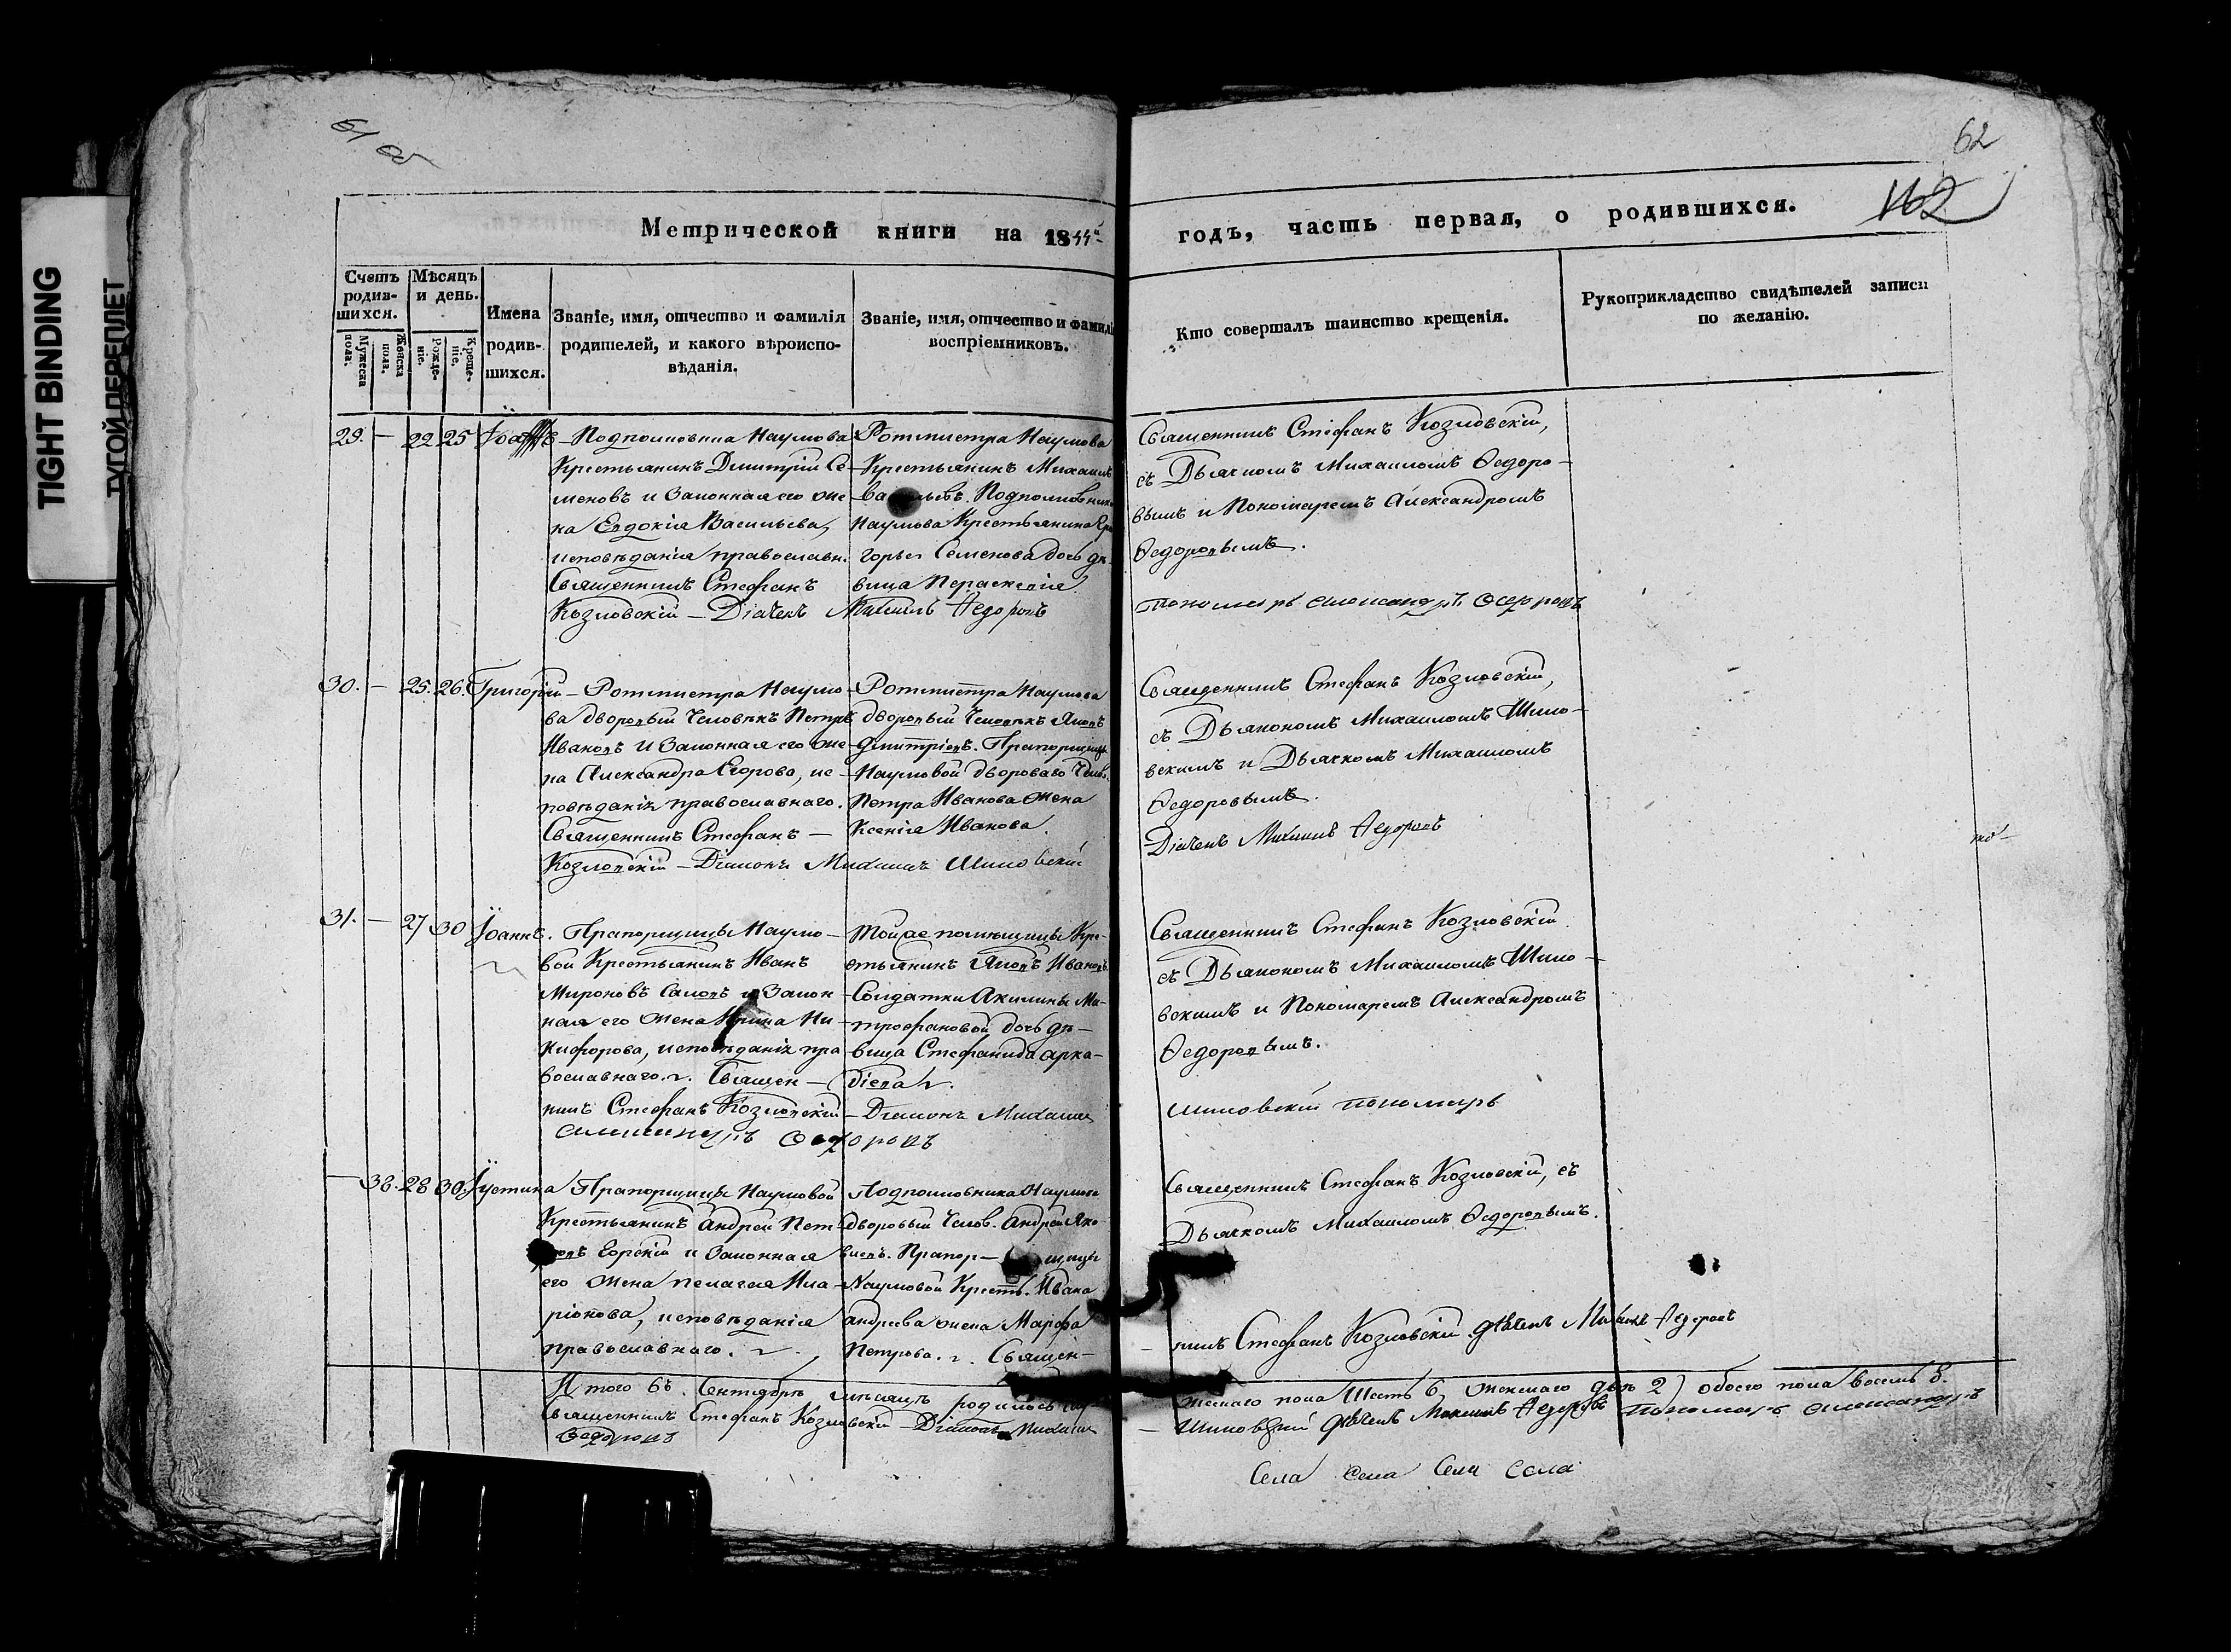 TIGHT BINDING
ТУГОЙ ПЕРЕПЛЕТ
61 об
62
162
Метрической книги на 1844й
годъ, часть первая, о родившихся.
Счетъ родив-шихся.
Мужеска пола.
Женска пола.
Мѣсяцъ и день.
Рожде-ніе.
Креще-ніе.
Имена родив-шихся.
Званіе, имя, отчество и фамилія родителей, и какого вѣроиспо-вѣданія.
Званіе, имя, отчество и фамилі воспріемниковъ.
Кто совершалъ таинство крещенія.
Рукоприкладство свидѣтелей записи по желанію.
29. — 22 25
Подполковника Наумова
Крестьянинъ Димитрій Се-
меновъ и Законная его же
на Евдокія Васильева,
исповѣданія православн.
Священникъ Стефанъ
Козловскій — Діачекъ Михаилъ Федоровъ
Ротмистра Наумова
Крестьянинъ Михаилъ
Подполковника
Наумова Крестьянина Гри
горья Семенова дочь дѣ
вица Параскевія
Священникъ Стефанъ Козловскій,
съ Дьячкомъ Михаиломъ Ѳедоро-
вымъ и Пономаремъ Александромъ
Ѳедоровымъ.
Пономарь Александръ Ѳедоровъ
30. — 25. 26. Григорій
Ротмистра Наумо
ва дворовый человѣкъ Петръ
Ивановъ и Законная его же
на Александра Егорова, ис
повѣданія православнаго.
Священникъ Стефанъ —
Козловскій — Діаконъ Михаилъ Шиловскій
Ротмистра Наумова
дворовый человѣкъ Яковъ
Дмитріевъ. Прапорщицы
Наумовой двороваго Челов.
Петра Иванова жена
Ксенія Иванова.
Священникъ Стефанъ Козловскій,
съ Дьякономъ Михаиломъ Шило-
вскимъ и Дьячкомъ Михаиломъ
Ѳедоровымъ.
Діачекъ Михаилъ Федоровъ
31. — 27 30 Іоаннъ.
Прапорщицы Наумо-
вой Крестьянинъ Иванъ
Мироновъ и Закон
ная его жена Ирина Ни
кифорова, исповѣданія пра
вославнаго. Священ-
никъ Стефанъ Козловскій — Діаконъ Михаилъ
Александръ Ѳедоровъ
Тойже помѣщицы Кре-
стьянинъ Яковъ Ивановъ
Солдатки Акилины Ми-
трофановой дочь дѣ-
вица Стефанида Арка-
діева.
Священникъ Стефанъ Козловскій
съ Дьякономъ Михаиломъ Шило-
вскимъ и Пономаремъ Александромъ
Ѳедоровымъ.
Шиловскій Пономарь
— 28 30 Іустина
Прапорщицы Наумовой
Крестьянинъ Андрей Пет-
и Законная
его жена Пелагея Ила-
ріонова, исповѣданія
православнаго.
Подполковника Наумова
дворовый Челов. Андрей Яко
влевъ. Прапор-щицы
Наумовой Кресть. Ивана
Андреева жена Марфа
Петрова. Священ-
Священникъ Стефанъ Козловскій, съ
Дьячкомъ Михаиломъ Ѳедоровымъ.
никъ Стефанъ Козловскій дѣячекъ Михаилъ Федоровъ
Итого въ Сентябрѣ мѣсяцѣ родилось
жескаго пола Шесть 6, женскаго двѣ 2) обоего пола восемь 8.
Священникъ Стефанъ Козловскій — Діаконъ Михаилъ
Шиловскій дѣячекъ Михаилъ Федоровъ Пономарь Александръ
Ѳедоровъ
Села Села Села Села